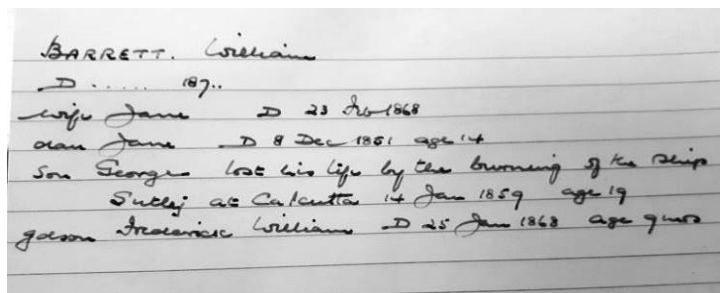 BARRETT. William
D ...... 187..
wife Jane D 23 Feb 1868
dau Jane D 8 Dec 1851 age 14
Son George lost his life by the burning of the Ship
Sutlej at Calcutta 14 Jan 1859 age 19
gdson Frederick William D 25 Jan 1868 age 9 mos